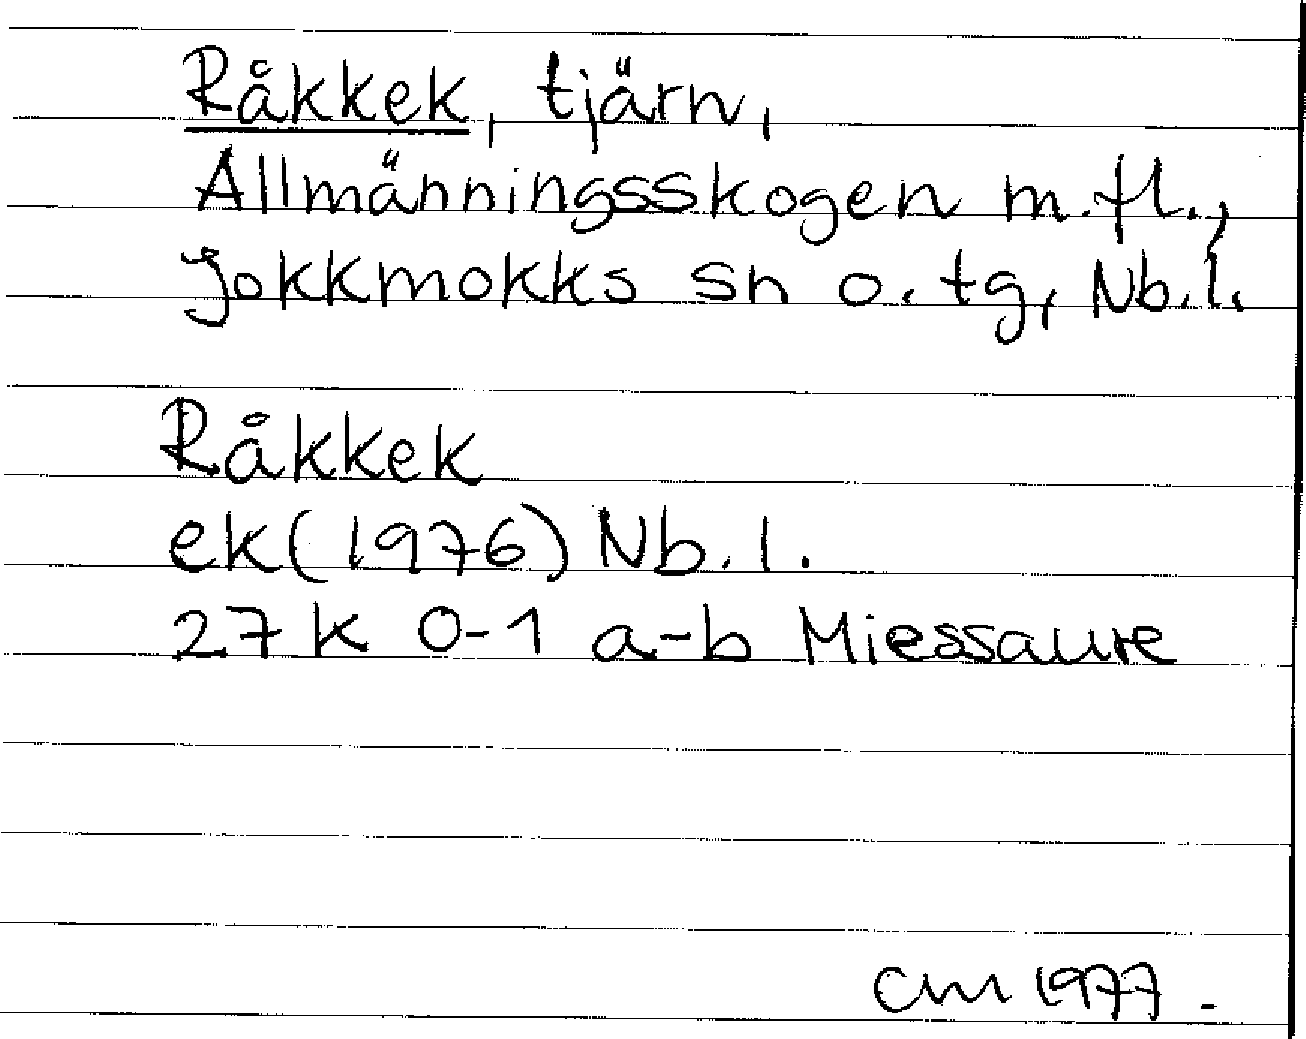 Råkkek, tjärn,
Allmänningsskogen m.fl.,
Jokkmokks sn o. tg, Nb.l.
Råkkek
ek (1976) Nb.l.
27 K 0-1 a-b Miessaure
CM 1977.